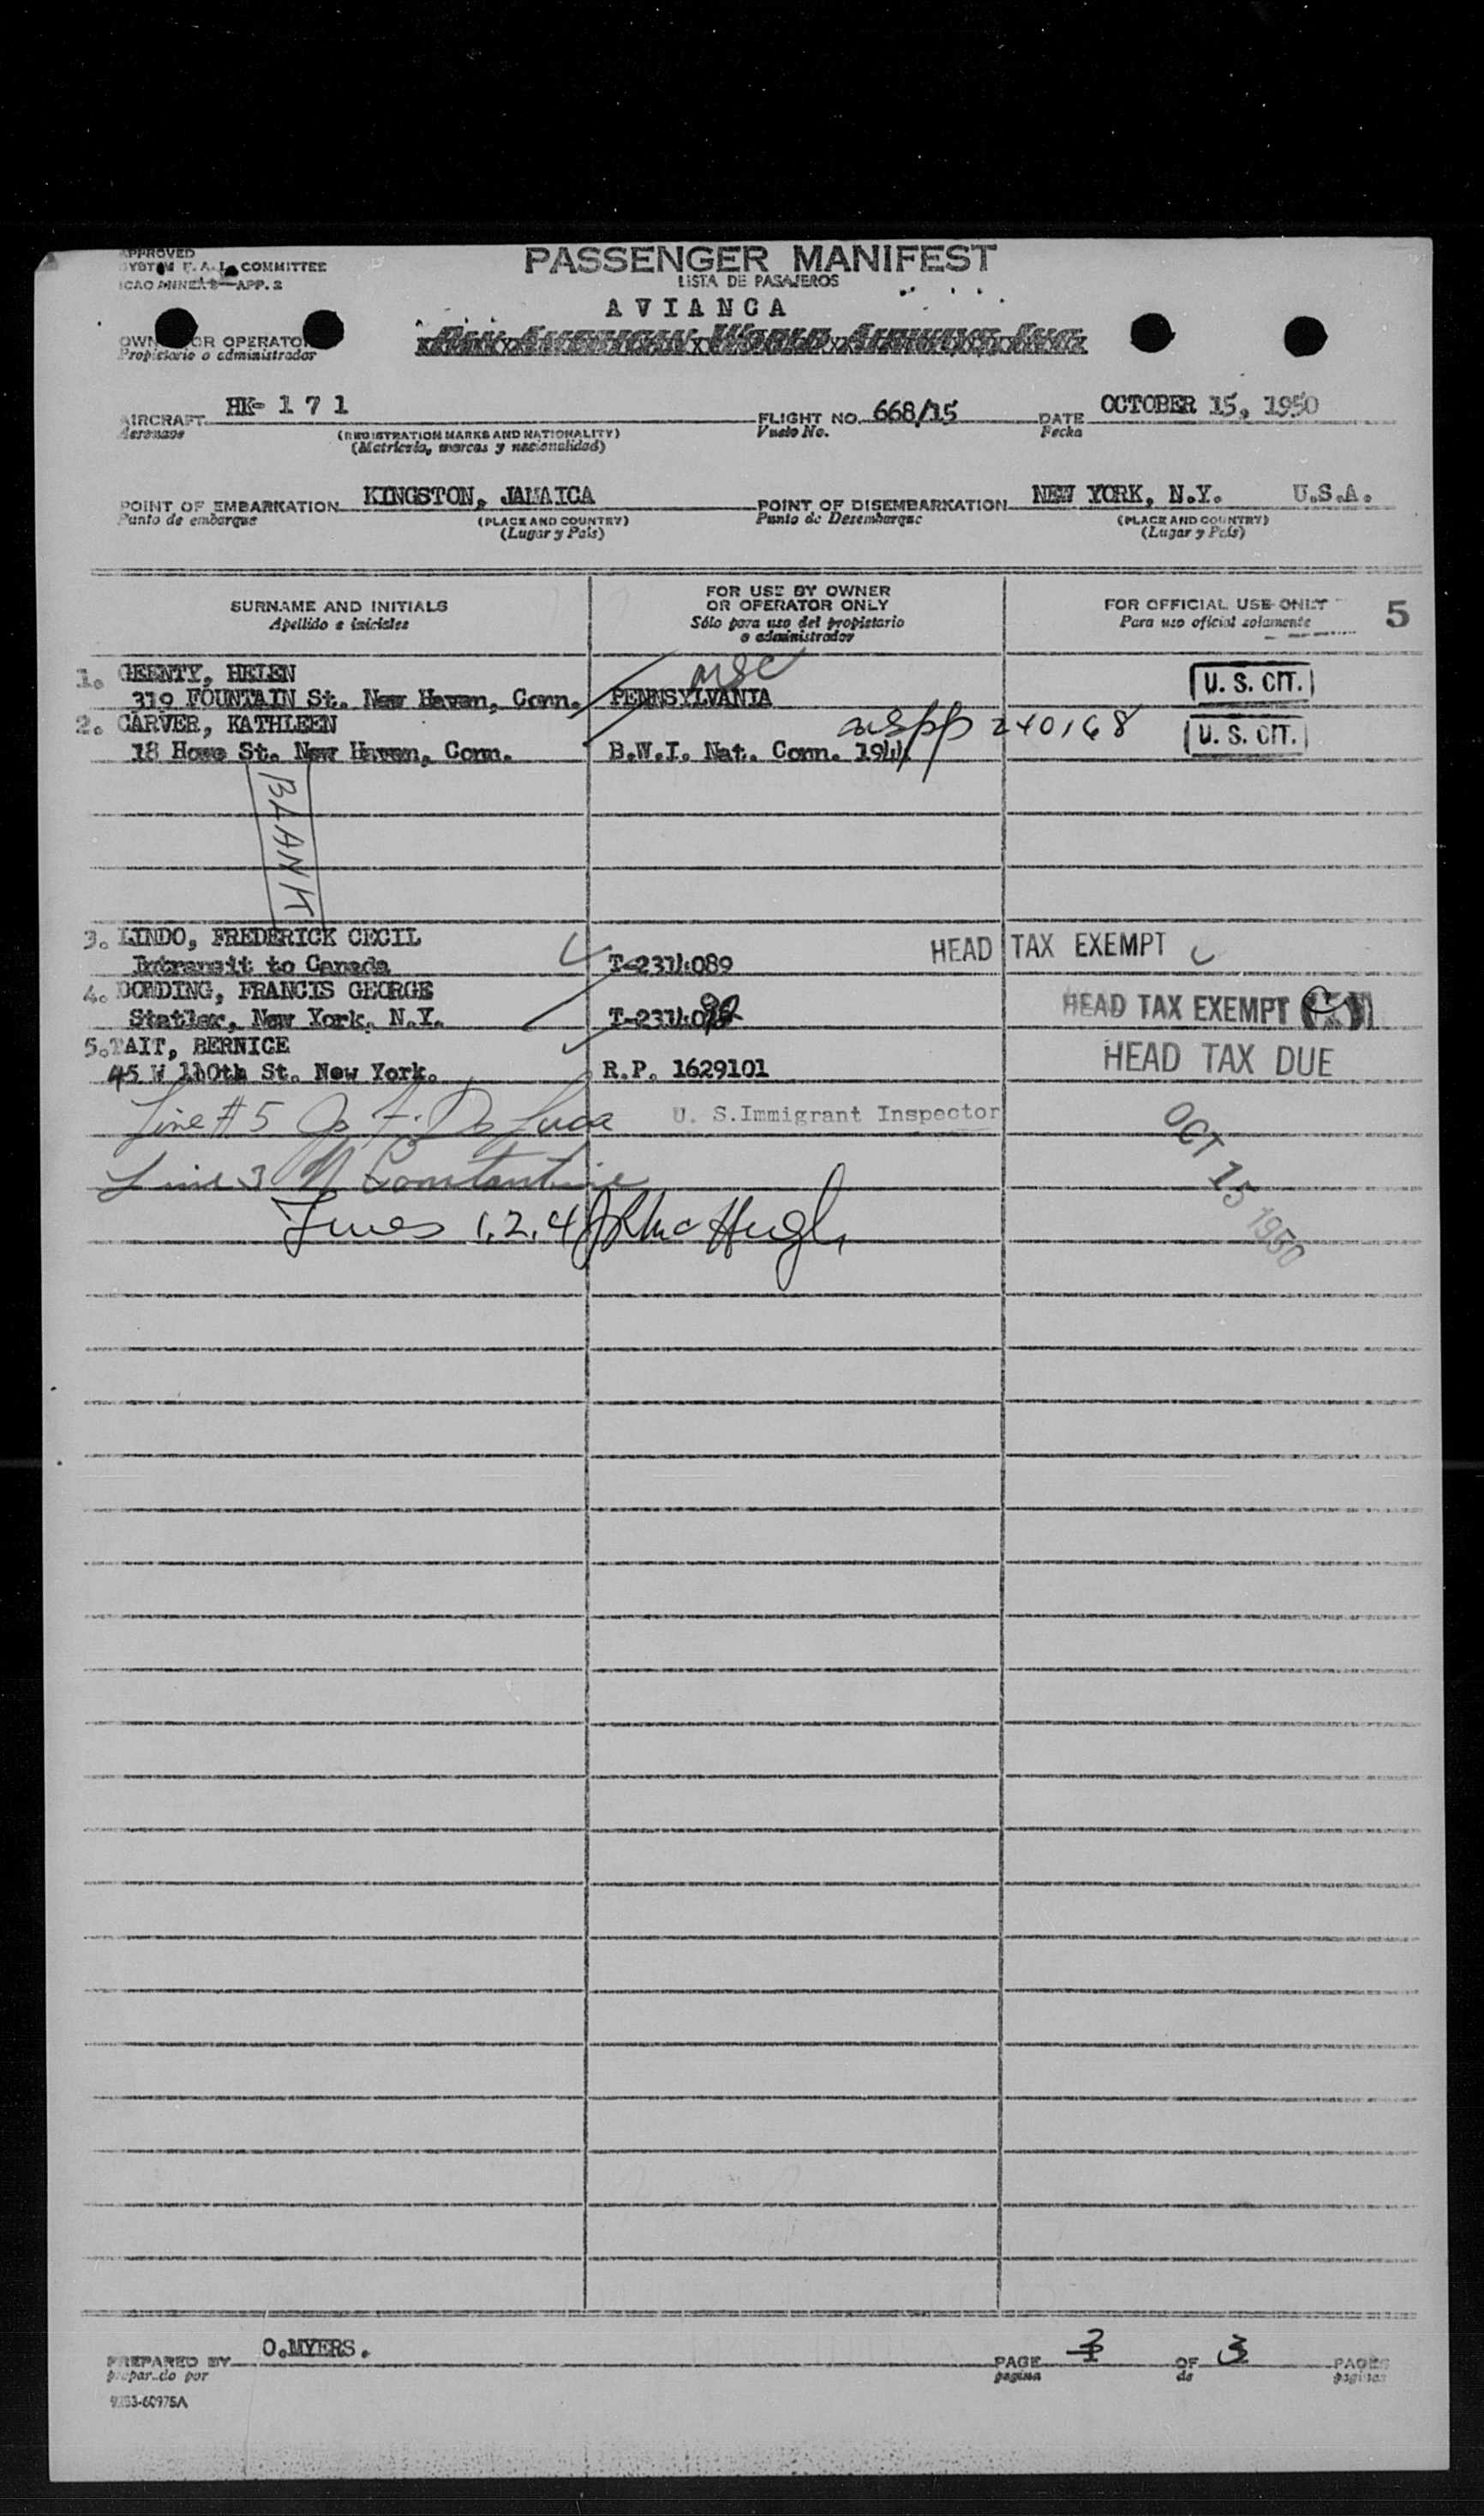 APPROVED
SYSTEM F.A.L. COMMITTEE
ICAO ANNEX 9—APP. 2
PASSENGER MANIFEST
LISTA DE PASAJEROS
AVIANCA
OWNER OR OPERATOR
Propietario o administrador
Pan American World Airways Inc.
AIRCRAFT HK- 1 7 1 FLIGHT NO. 668/15 DATE OCTOBER 15, 1950
Aeronave (REGISTRATION MARKS AND NATIONALITY) Vuelo No. Fecha
(Matrícula, marcas y nacionalidad)
POINT OF EMBARKATION KINGSTON, JAMAICA POINT OF DISEMBARKATION NEW YORK, N.Y. U.S.A.
Punto de embarque (PLACE AND COUNTRY) Punto de Desembarque (PLACE AND COUNTRY)
(Lugar y País) (Lugar y País)
SURNAME AND INITIALS FOR USE BY OWNER OR OPERATOR ONLY FOR OFFICIAL USE ONLY 5
Apellido e iniciales Sólo para uso del propietario o administrador Para uso oficial solamente
1. GEENTY, HELEN U. S. CIT.
319 FOUNTAIN St. New Haven, Conn. PENNSYLVANIA
2. CARVER, KATHLEEN uspp 240168 U. S. CIT.
18 Howe St. New Haven, Conn. B.W.I. Nat. Conn. 1944
BLANK
3. LINDO, FREDERICK CECIL HEAD TAX EXEMPT
Intransit to Canada T-2314089
4. DOWDING, FRANCIS GEORGE HEAD TAX EXEMPT
Statler, New York, N.Y. T-2314090
5. TAIT, BERNICE HEAD TAX DUE
45 W 110th St. New York. R.P. 1629101
Line #5 Jos. F. De Luca U. S. Immigrant Inspector
OCT 15 1950
Line 3 N Constantine
Lines 1, 2, 4 J R McHugh
PREPARED BY O.MYERS. PAGE 3 OF 3 PAGES
preparado por pagina de paginas
9253-60975A